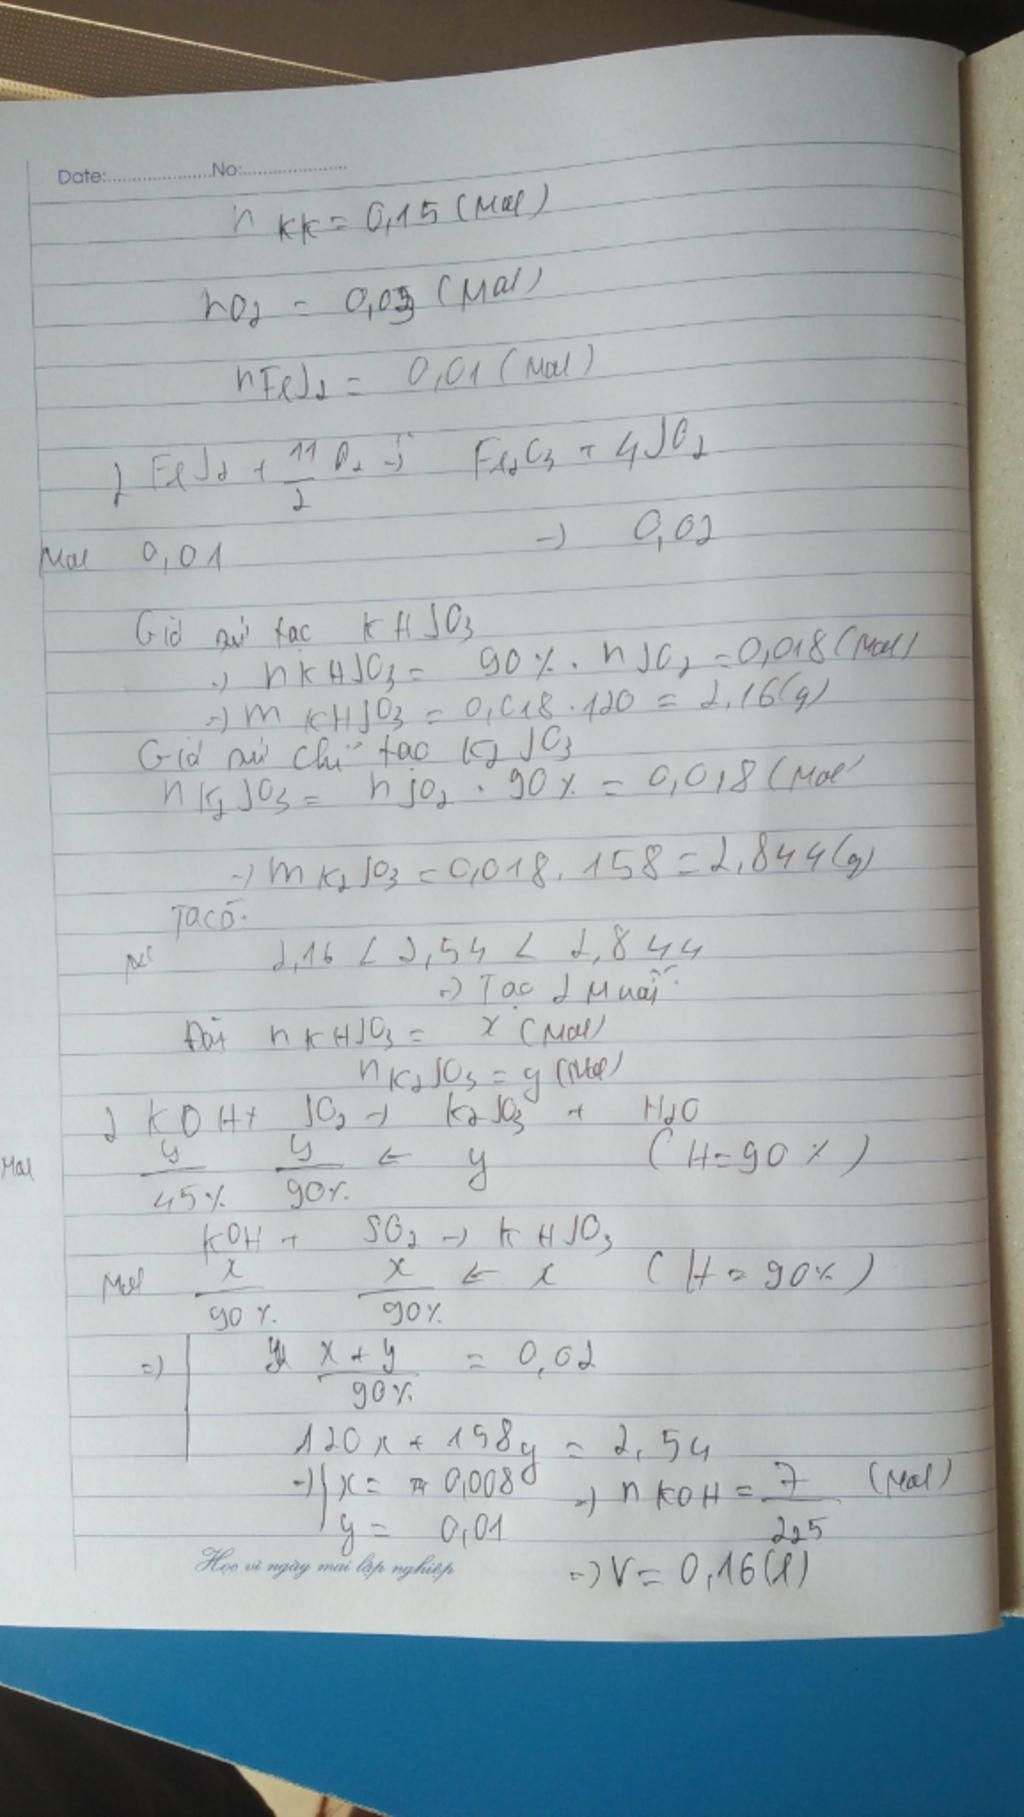 Date:......................No:......................
n KK = 0,15 (Mol)
nO2 = 0,03 (Mol)
nFeS2 = 0,01 (Mol)
2 FeS2 + 11/2 O2 → Fe2O3 + 4SO2
Mol 0,01 → 0,02
Giả sử tạo KHSO3
=> nKHSO3 = 90%. nSO2 = 0,018 (Mol)
=> m KHSO3 = 0,018.120 = 2,16(g)
Giả sử chỉ tạo K2SO3
nK2SO3 = nSO2 . 90% = 0,018 (Mol
=> mK2SO3 = 0,018. 158 = 2,844(g)
Ta có:
2,16 < 2,54 < 2,844
=> Tạo 2 Muối
Đặt nKHSO3 = x (Mol)
nK2SO3 = y (Mol)
2 KOH + SO2 → K2SO3 + H2O
Mol y/45% y/90% ← y (H=90%)
KOH + SO2 → KHSO3
Mol x/90% x/90% ← x (H = 90%)
=> x + y/90% = 0,02
120x + 158y = 2,54
=> x = 0,008 => nKOH = 7/225 (Mol)
y = 0,01
=> V = 0,16(l)
Học vì ngày mai lập nghiệp